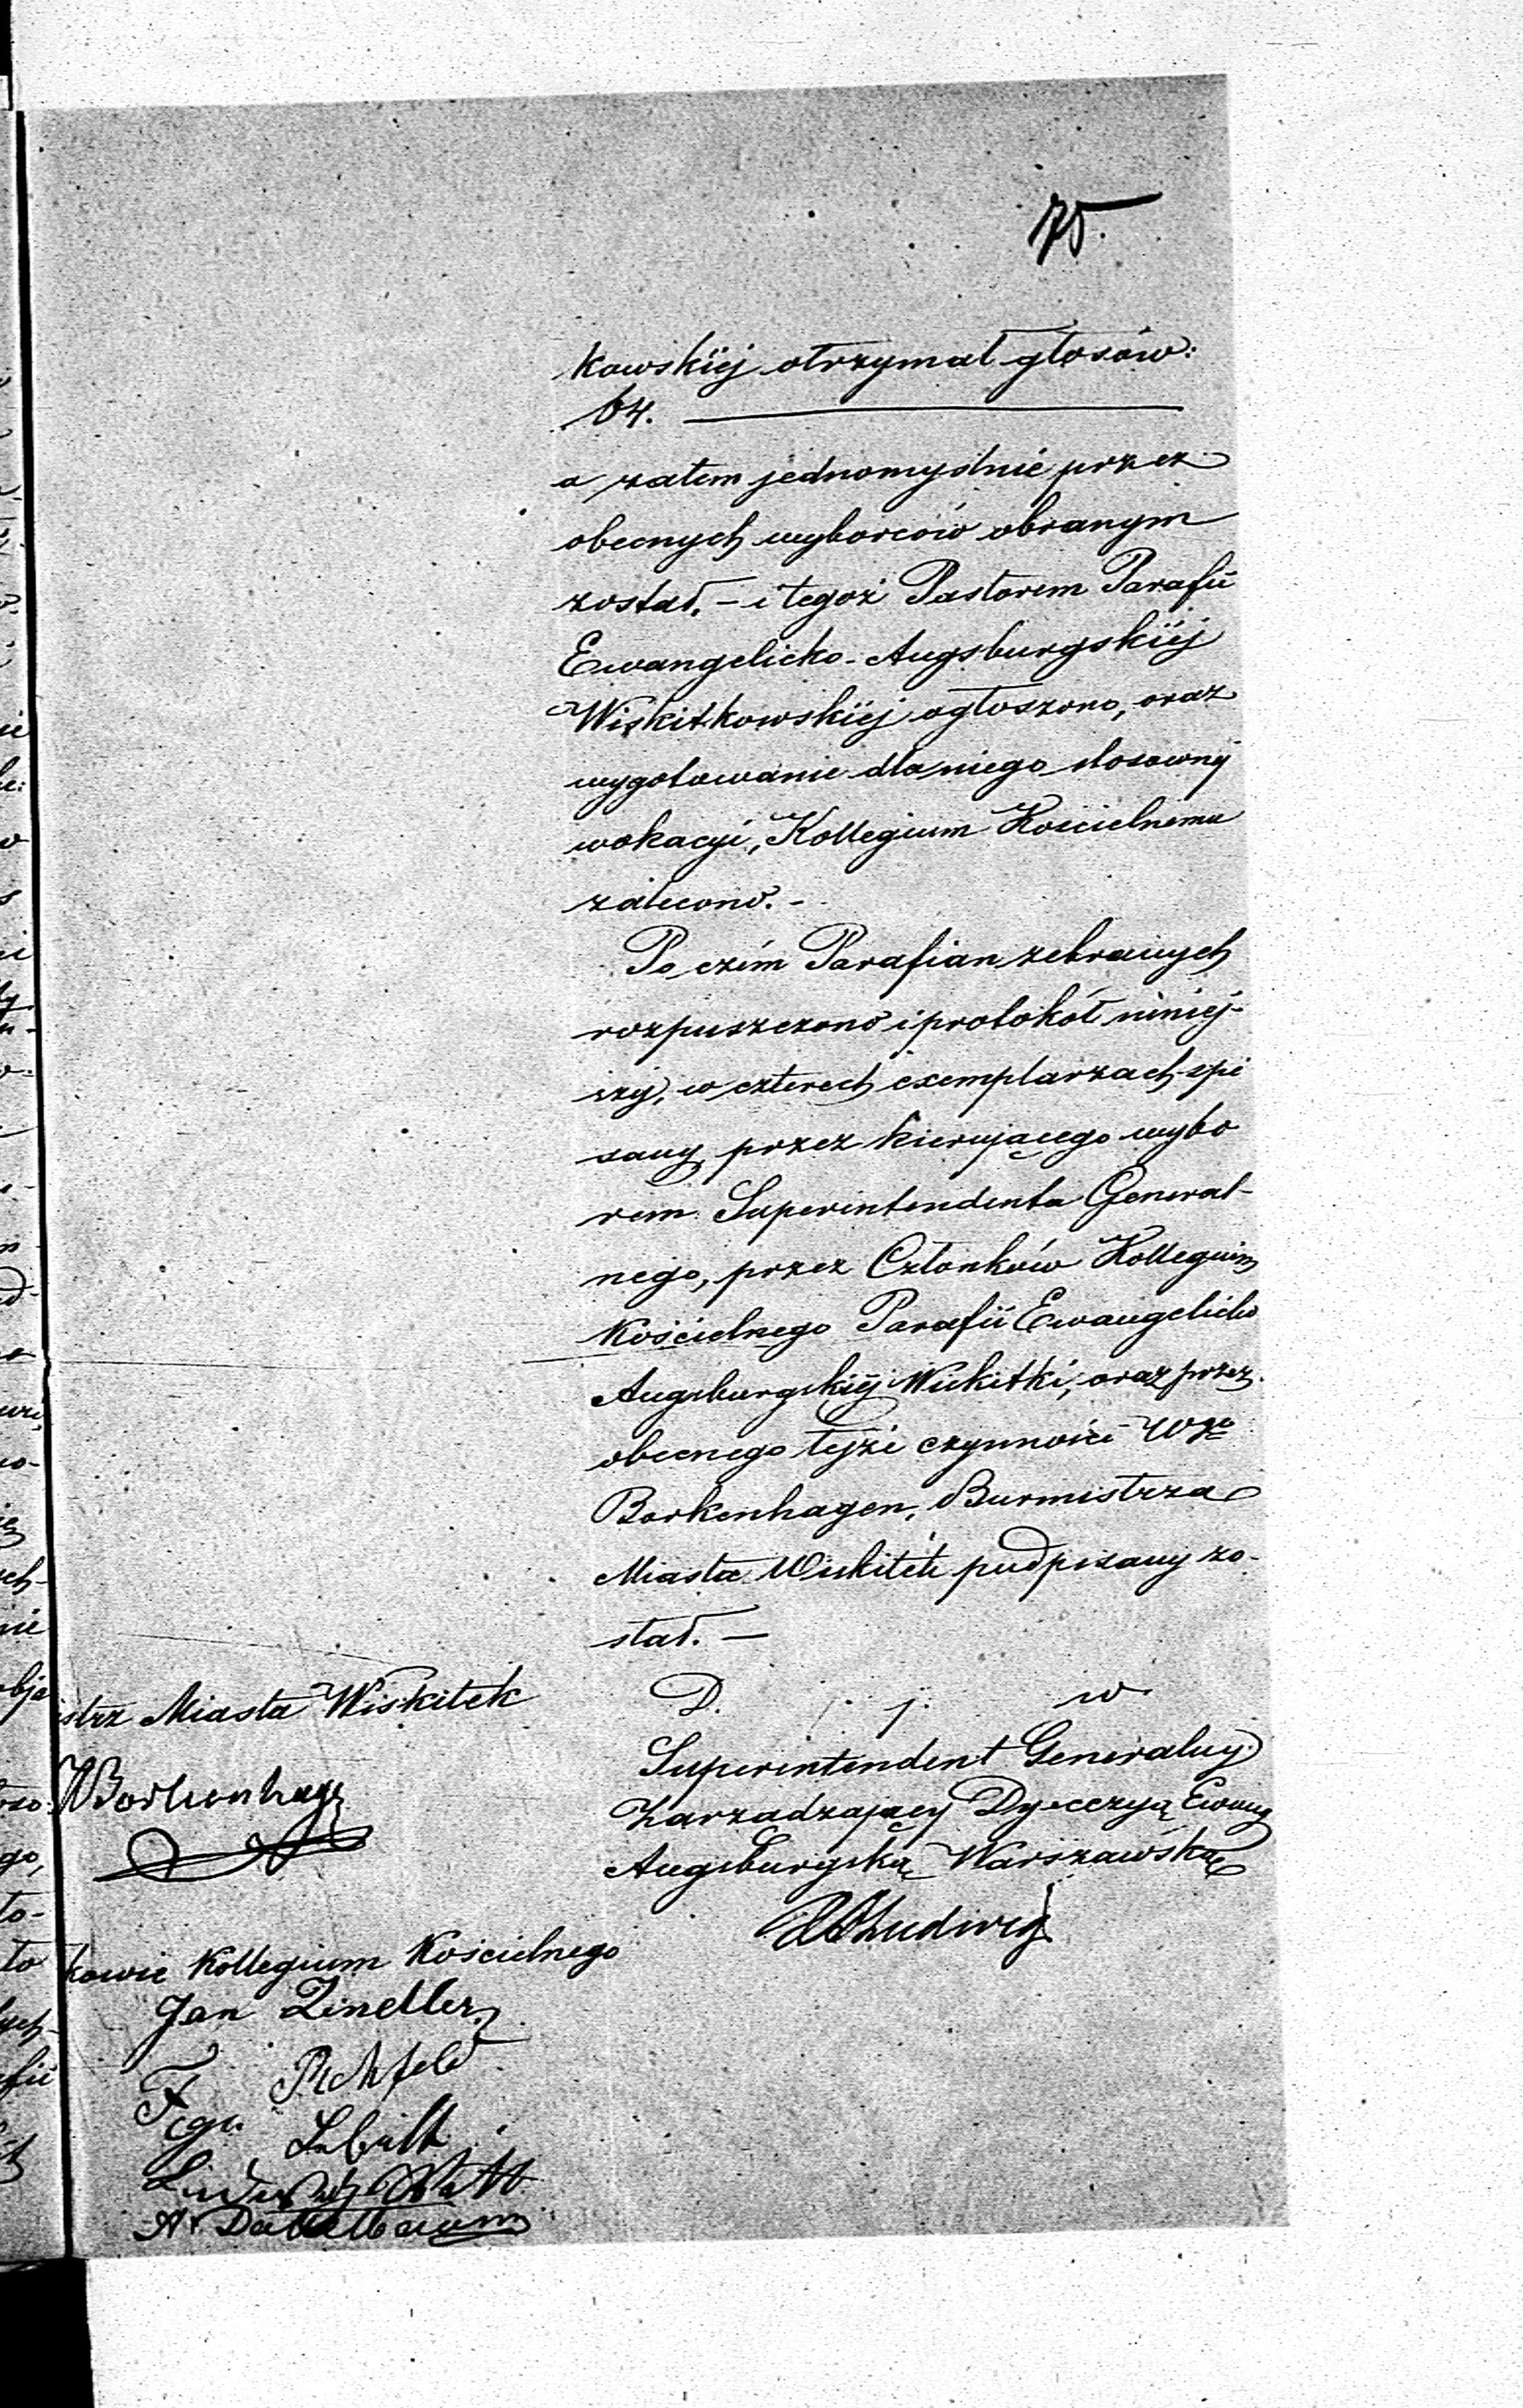 75.
kowskiéj otrzymał głosów:
64.
a zatem jednomyślnie przez
obecnych wyborców obranym
został. – i tegoż Pastorem Parafii
Ewangelicko-Augsburgskiéj
Wiskitkowskiéj ogłoszono, oraz
wygotowanie dla niego stosownéj
wokacyi, Kollegium Kościelnemu
zalecono. –
Po czém Parafian zebranych
rozpuszczono i protokół niniej-
szy, w czterech exemplarzach spi
sany, przez kierującego wybo
rem Superintendenta General-
nego, przez Członków Kollegium
Kościelnego Parafii Ewangelicko
Augsburgskiéj Wiskitki, oraz przez
obecnego téjże czynności Wgo
Borkenhagen, Burmistrza
Miasta Wiskitek podpisany zo-
stał. –
D. j. w
Superintendent Generalny
Zarządzający Dyecezyą Ewang
Augsburgską Warszawską
Ludwig
istrz Miasta Wiskitek
Borkenhagen
kowie Kollegium Kościelnego
Jan Zindler